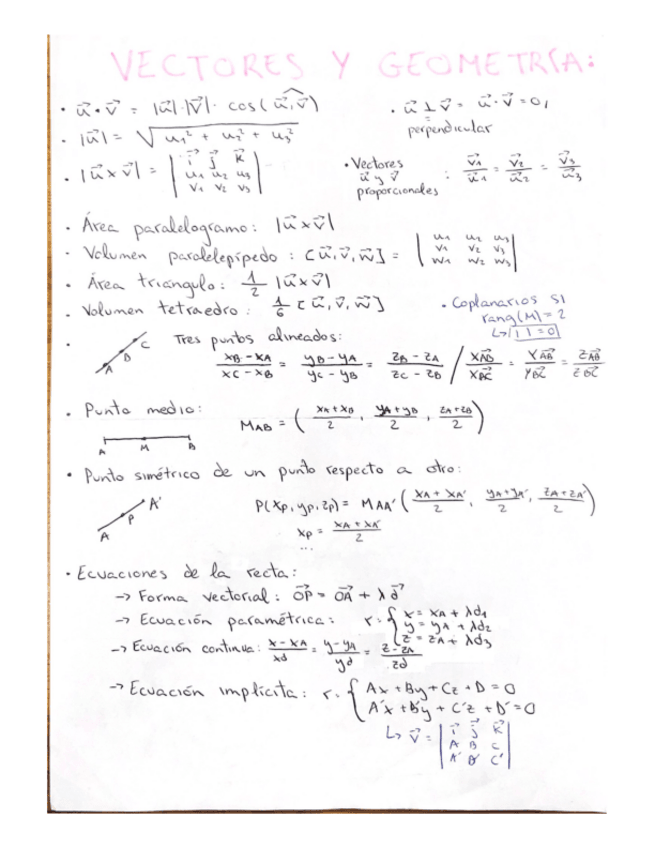 VECTORES Y GEOMETRÍA:
· u⃗ · v⃗ = |u⃗|·|v⃗| · cos(u⃗,v⃗)
· u⃗ ⊥ v⃗ = u⃗ · v⃗ = 0
perpendicular
· |u⃗| = √(u₁² + u₂² + u₃²)
· |u⃗ x v⃗| = | i⃗ j⃗ k⃗ |
| u₁ u₂ u₃ |
| v₁ v₂ v₃ |
· Vectores u⃗ y v⃗ proporcionales : v⃗₁/u⃗₁ = v⃗₂/u⃗₂ = v⃗₃/u⃗₃
· Área paralelogramo: |u⃗ x v⃗|
· Volumen paralelepípedo : [u⃗, v⃗, w⃗] = | u₁ u₂ u₃ |
| v₁ v₂ v₃ |
| w₁ w₂ w₃ |
· Área triangulo: 1/2 |u⃗ x v⃗|
· Volumen tetraedro: 1/6 [u⃗, v⃗, w⃗]
· Coplanarios SI
rang(M) = 2
↳ | | = 0
· A B C Tres puntos alineados:
xB - xA / xC - xB = yB - yA / yC - yB = zB - zA / zC - zB / XAB⃗ / XBC⃗ = YAB⃗ / YBC⃗ = ZAB⃗ / ZBC⃗
· Punto medio:
MAB = ( xA + xB / 2 , yA + yB / 2 , zA + zB / 2 )
A M B
· Punto simétrico de un punto respecto a otro:
A P A'
P(xp, yp, zp) = MAA' ( xA + xA' / 2 , yA + yA' / 2 , zA + zA' / 2 )
xp = xA + xA' / 2
...
· Ecuaciones de la recta:
→ Forma vectorial: OP⃗ = OA⃗ + λ d⃗
→ Ecuación paramétrica: r = { x = xA + λd₁
y = yA + λd₂
z = zA + λd₃
→ Ecuación continua: x - xA / xd = y - yA / yd = z - zA / zd
→ Ecuación implícita: r = { Ax + By + Cz + D = 0
A'x + B'y + C'z + D' = 0
↳ v⃗ = | i⃗ j⃗ k⃗ |
| A B C |
| A' B' C' |